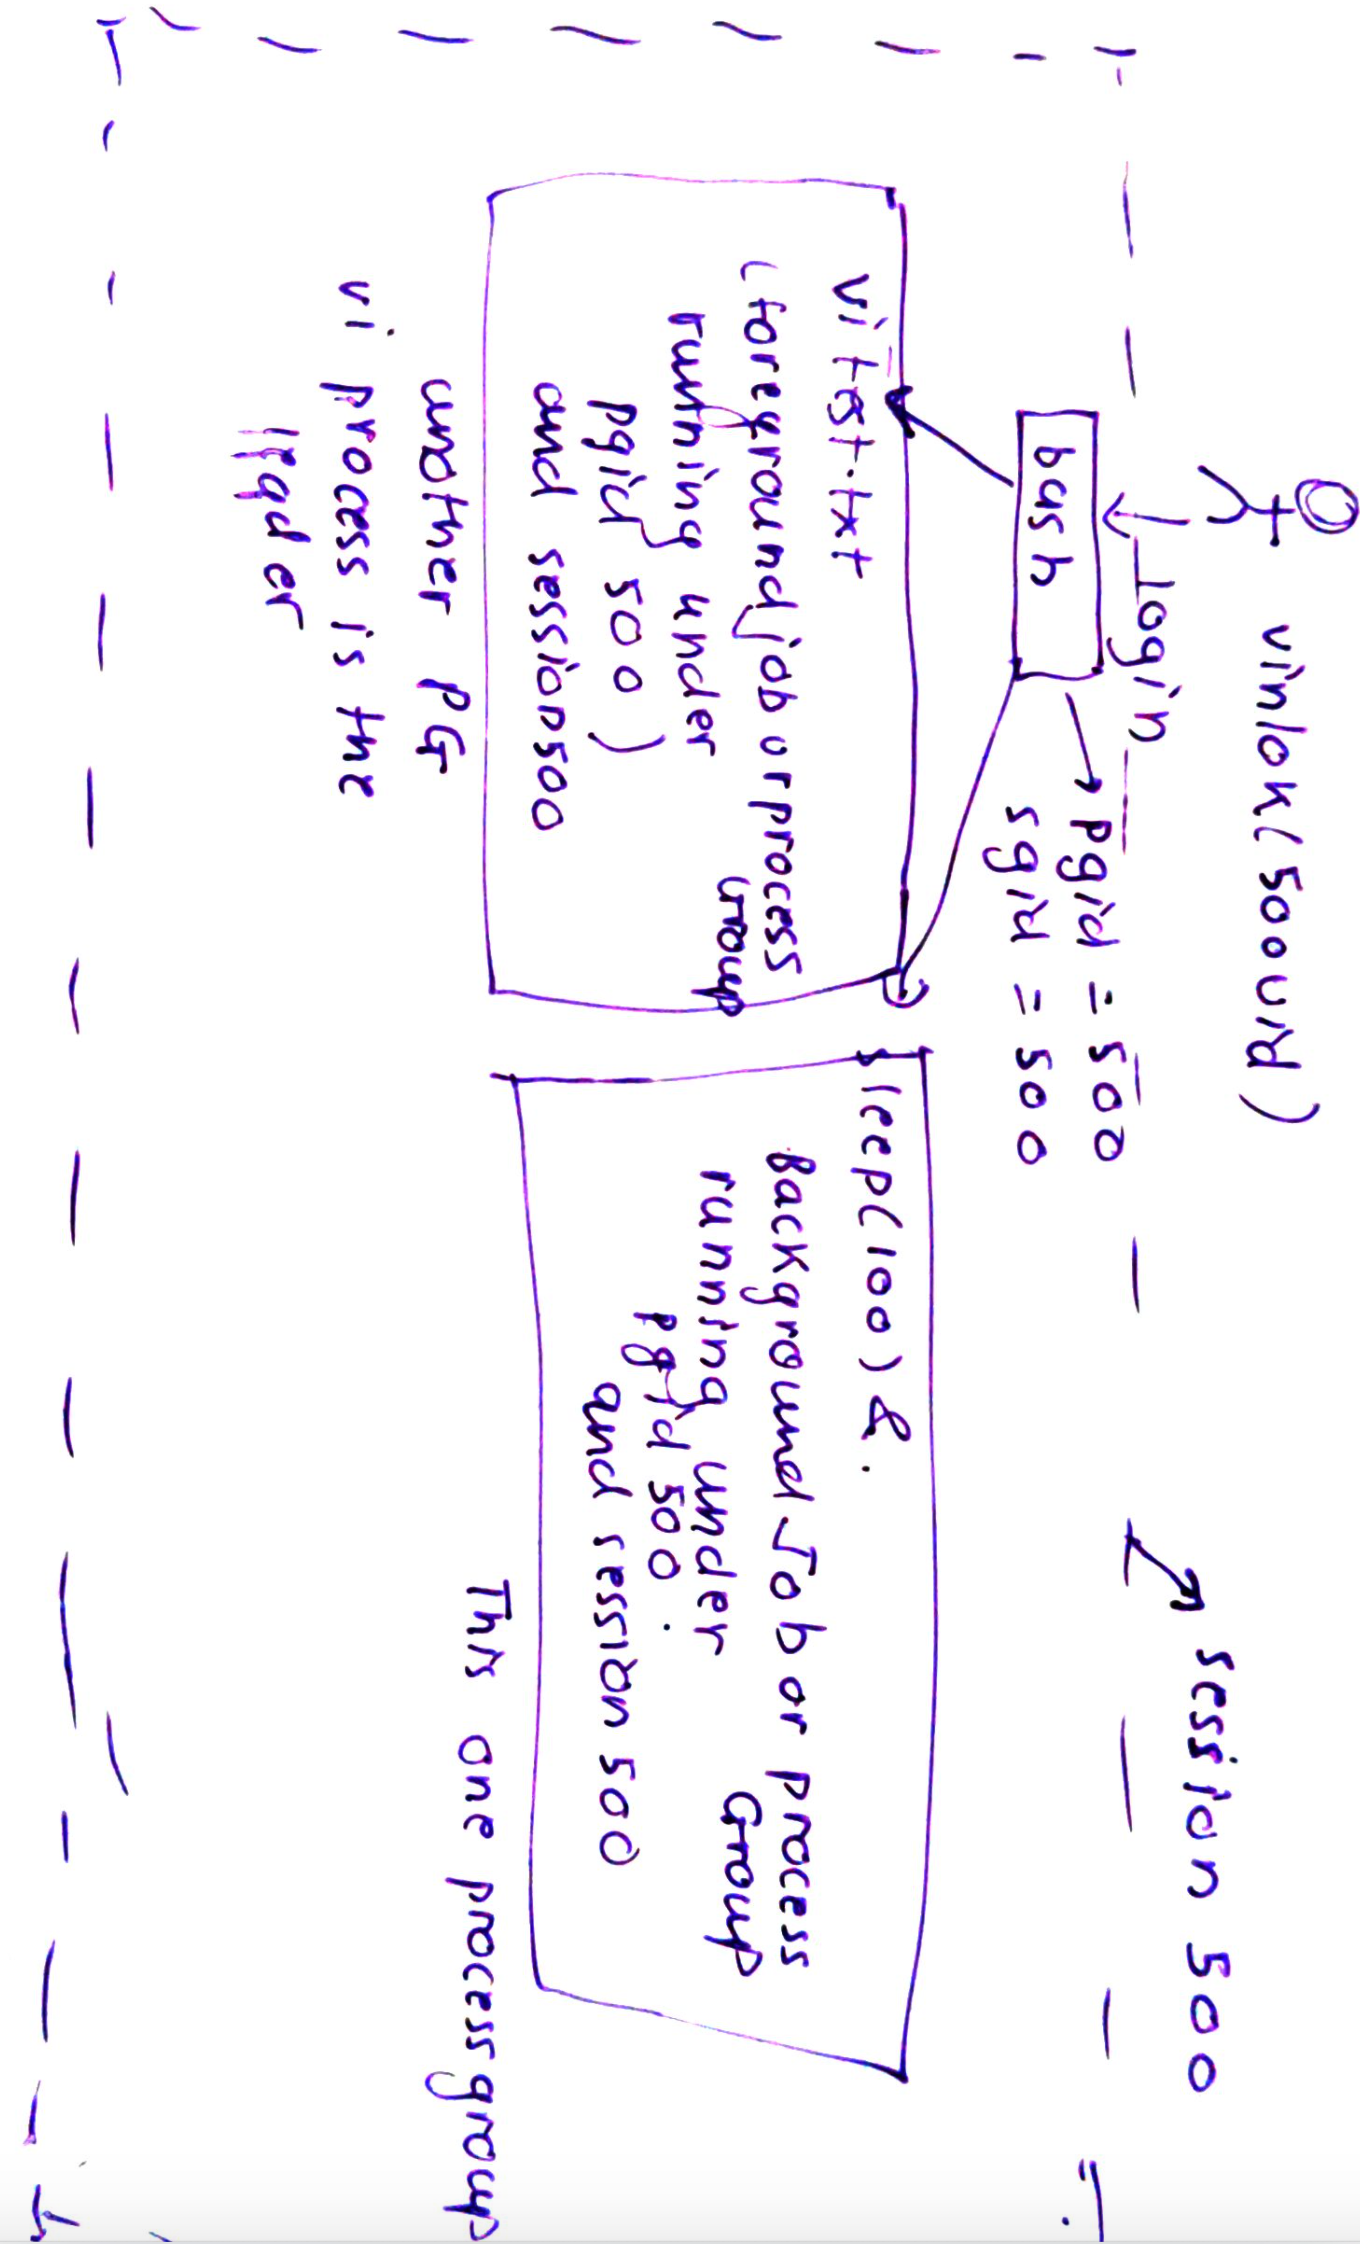 vinlok(500uid)
Login
session 500
bash
pgid = 500
sgid = 500
vi tst.txt
(foreground job or process
Group
running under
pgid 500)
and session500
another PG
vi process is the
leader
sleep(100) &.
Background Job or process
Group
running under
pgid 500.
and session 500
This one process group